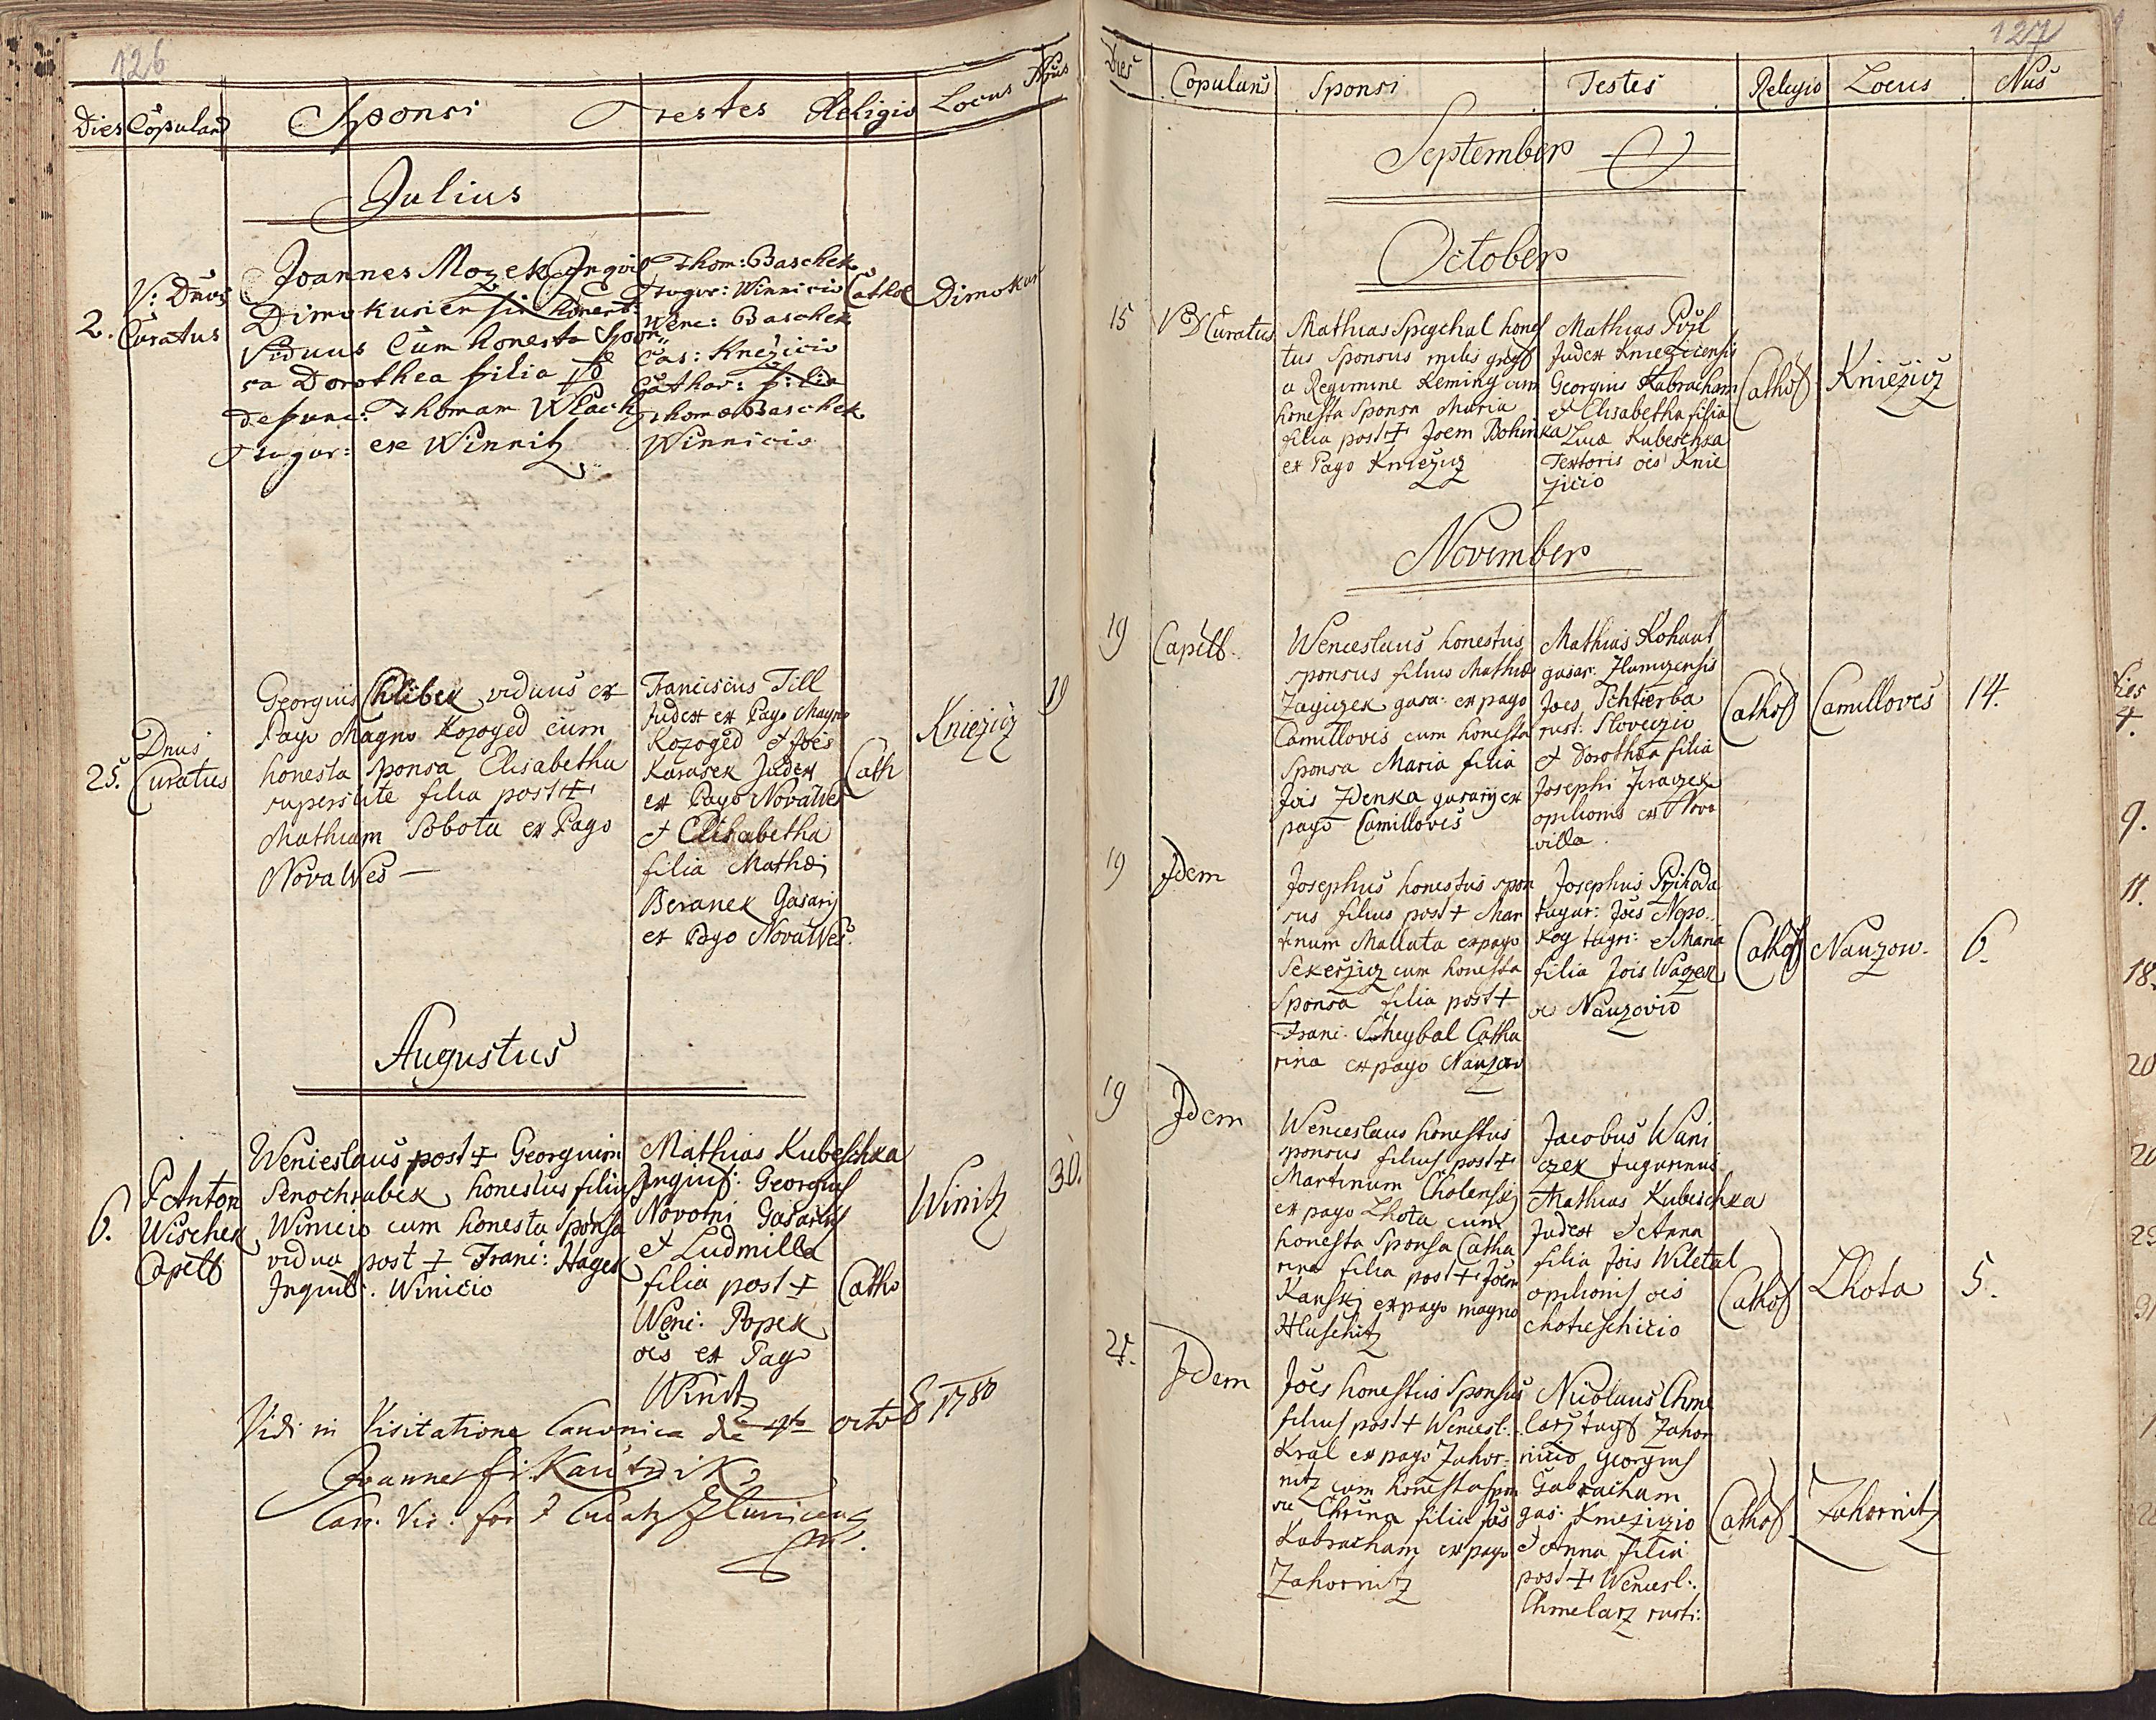 126
Dies Copulans Sponsi Testes Religio Locus Nrus
Julius
2.
V: Dnus
Curatus
Joannes Mozek Inquil
Dimokuriensis honest:
Viduus Cum honesta Spon
sa Dorothea filia
defunc: Thomam Wlach
Tugur: ex Winnitz
Thom: Baschek
Tugur: Winnicio
Wenc: Baschek
Cas: Knežicio
Cathar: filia
Thomæ Baschek
Winnicio
Cathol
Dimokur
25.
Dnus
Curatus
Georgius Chlibek viduus ex
Pago Magno Kozoged cum
honesta Sponsa Elisabetha
superstite filia post +
Mathiam Sobota ex Pago
Nova Wes
Franciscus Till
Judex ex Pago Magno
Kozoged & Joes
Karasek Judex
ex Pago Nova Wes
& Elisabetha
filia Mathæi
Beranek Gasarij
ex Pago Nova Wes
Cath
Kniežicz
19
Augustus
6.
P. Anton
Wischek
Capell
Wenceslaus post + Georgium
Senochrabek honestus filius
Winicio cum honesta Sponsa
vidua post + Franc: Hagek
Inquil: Winicio
Mathias Kubeschka
Inquil: Georgius
Novotni Gasarius
et Ludmilla
filia post +
Wenc: Popek
oes ex Pago
Winitz
Catho
Winitz
30.
Vidi in Visitatione Canonica de octo 8 1780
Joannes Kautzik
127
Dies Copulans Sponsi Testes Religio Locus Nus
September
October
15
V D Curatus
Mathias Spegchal hones
tus Sponsus milis greg
a Regimine Keming cum
honesta Sponsa Maria
filia post + Joem Bohinka
ex Pago Kniežicz
Mathias Pužl
Judex Kniežicensis
Georgius Kabracham
& Elisabetha filia
Lucæ Kubeschka
Textoris oes Knie
žicio
Cathol
Kniežicz
November
19
Capell.
Wenceslaus honestus
sponsus filius Mathiæ
Zagiczek gasa: ex pago
Camillovis cum honesta
Sponsa Maria filia
Jois Zdenka gasarij ex
pago Camilloves
Mathias Kohaut
gasar: Zlunizensis
Joes Schtierba
rust: Sloveczio
& Dorothea filia
Josephi Jiraczek
opilionis ex Nova
villa.
Cathol
Camilloves
14.
19
Idem
Josephus honestus spon
sus filius post + Mar
tinum Mallata ex pago
Sekeržicz cum honesta
Sponsa filia post +
Franc. Scheybal Catha
rina ex pago Nauzow
Josephus Przihoda
tugur: Joes Nepo
kog tugri: & Maria
filia Jois Wagek
e Nauzovio
Cathol
Nauzow.
6.
19
Idem
Wenceslaus honestus
sponsus filius post +
Martinum Cholenskj
ex pago Lhota cum
honesta Sponsa Catha
rina filia post + Joem
Kanskj ex pago magno
Hluschitz
Jacobus Wani
czek tugurinus
Mathias Kubeschka
Judex & Anna
filia Jois Wiletal
opilionis oes
Chotieschicio
Cathol
Lhota
5.
25.
Idem
Joes honestus Sponsus
filius post + Wencesl:
Kral ex pago Zahor-
nitz cum honesta spon
sa Chrina filia Jois
Kabracham ex pago
Zahornitz
Nicolaus Chme
larz tugr Zahor
nicio Georgius
Gabracham
gas: Kniežiczio
& Anna filia
post + Wencesl:
Chmelarz rusti:
Cathol
Zahornitz